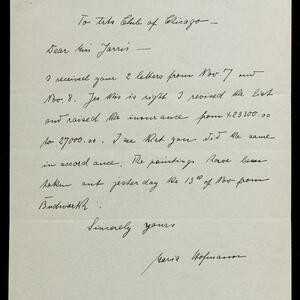 To Arts Club of Chicago -
Dear Miss Jarris -
I received your 2 letters from Nov. 7 and
Nov. 8. Yes this is right I revised the list
and raised the insurance from 23300.00
to 27000.00. I see that you did the same
in accordance. The paintings have been
taken out yesterday the 13th of Nov from
Budworth.
Sincerely yours
Maria Hofmann